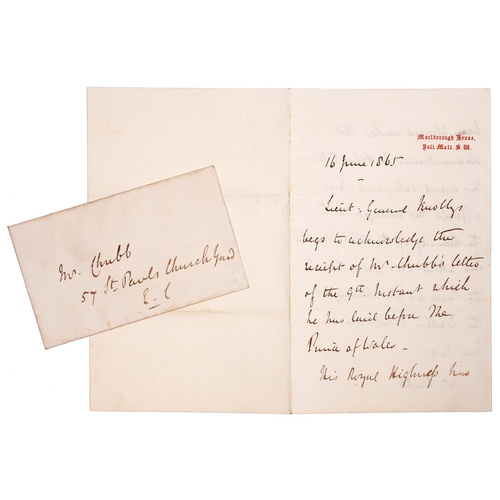 Marlborough House,
Pall Mall. S.W.
16 June 1865
Lieut: General Knollys
begs to acknowledge the
receipt of Mr. Chubb's letter
of the 9th. Instant which
he has laid before The
Prince of Wales -
His Royal Highness has
Mr. Chubb
57 St. Pauls Church Yard
E-C